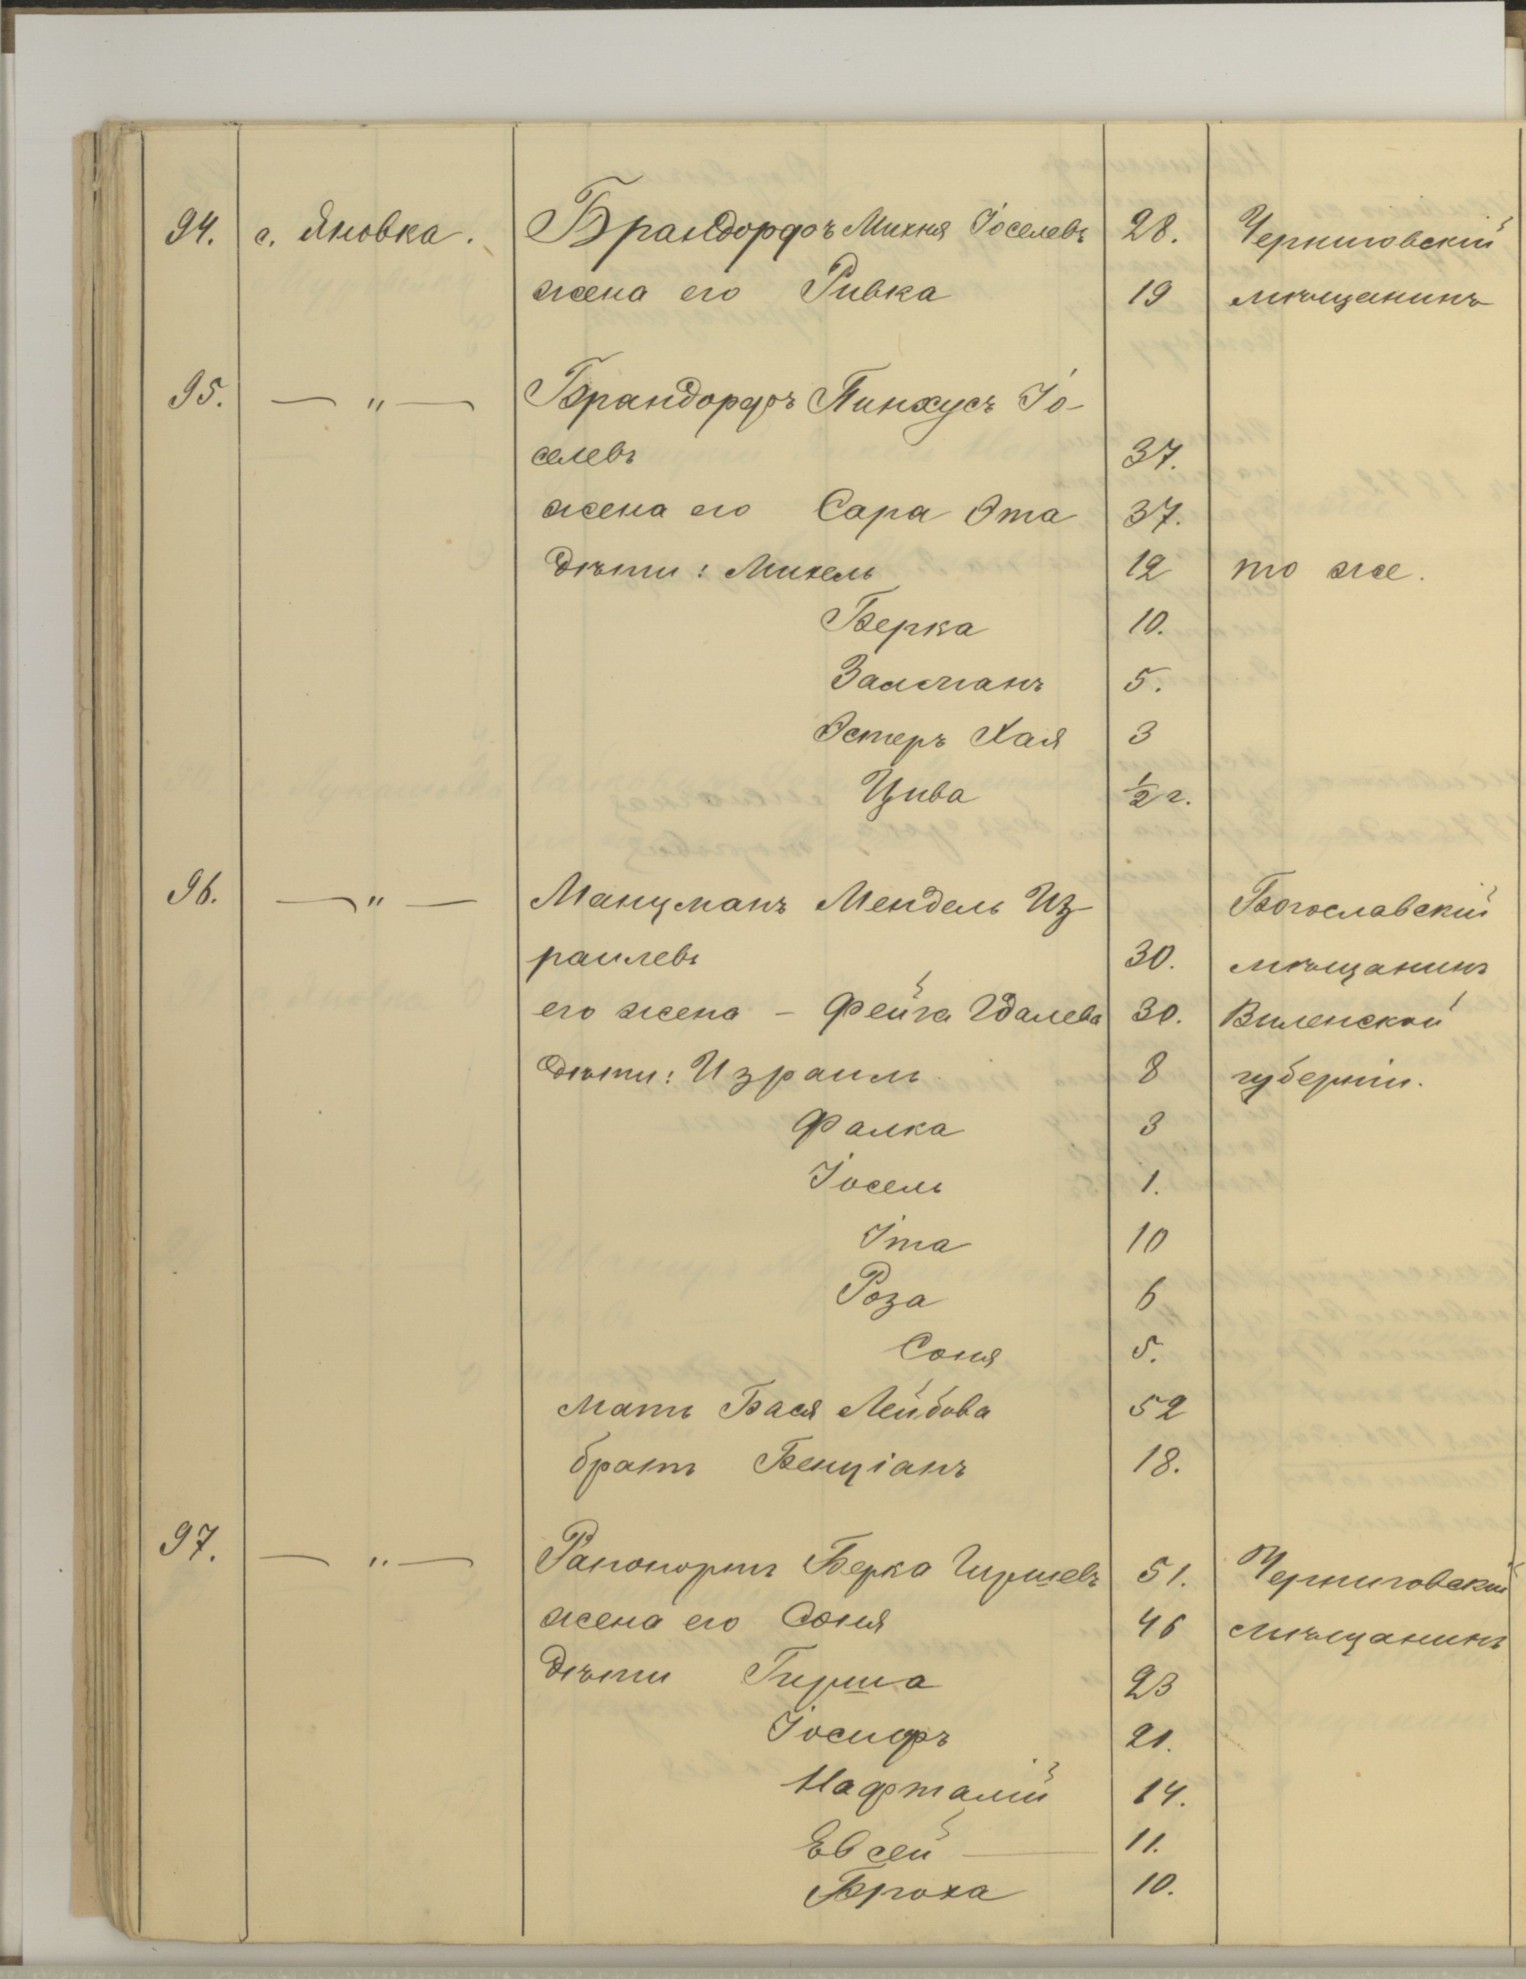 94. с. Яновка. Брандорфъ Михня Іоселевъ 28. Черниговскій
жена его Ривка 19 мѣщанинъ
95. — " — Брандорфъ Пинхусъ Іо-
селевъ 37.
жена его Сара Эта 37.
дѣти: Михель 12 то же.
Берка 10.
Залманъ 5.
Эстеръ Хая 3
Цива ½ г.
96. — " — Манцманъ Мендель Из Богославскій
раилевъ 30. мѣщанинъ
его жена - Фейга Гдалева 30. Виленской
дѣти: Израиль 8 губерніи.
Фалка 3
Іосель 1.
Іта 10
Роза 6
Соня 5.
мать Бася Лейбова 52
братъ Бенціанъ 18.
97. — " — Рапопортъ Берка Гиршевъ 51. Черниговскій
жена его Соня 46 мѣщанинъ
дѣти Гирша 23
Іосифъ 21.
Нафталій 14.
Евсей — 11.
Броха 10.